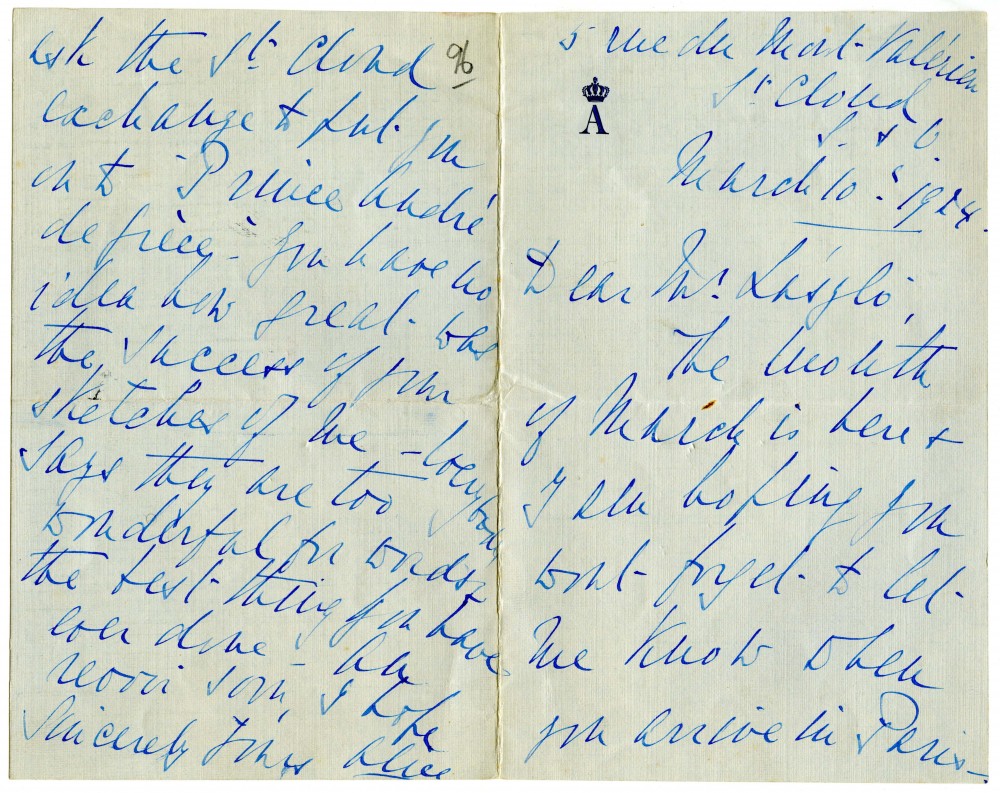 5 rue du Mont-Valérien
St Cloud
S. & O.
A
March 10th 1924.
Dear Mr László,
The month
of March is here &
I am hoping you
wont forget to let
me know when
you arrive in Paris –
96
ask the St Cloud
exchange to put you
on to "Prince André
de Grèce" – You have no
idea how great was
the success of your
sketches of me – Everybody
says they are too
wonderful for words &
the best thing you have
ever done – Au
revoir soon, I hope
Sincerely Yours Alice